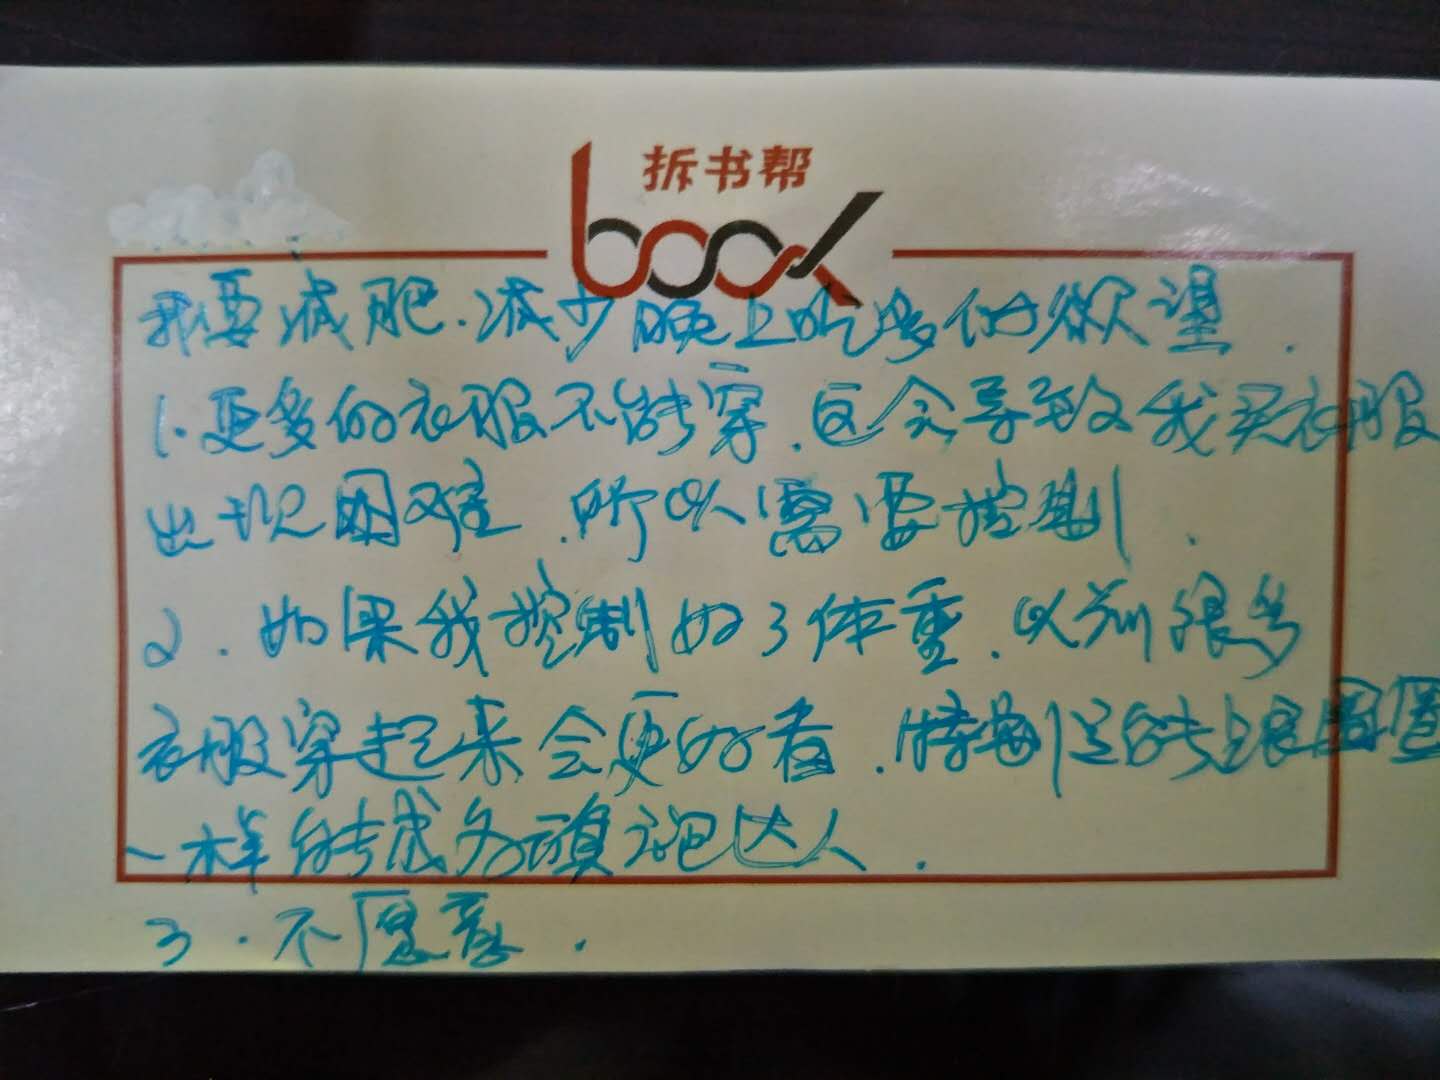 拆书帮
book
我要减肥.减少晚上吃多的欲望.
1.更多的衣服不能穿.这会导致我买衣服
出现困难.所以需要控制.
2.如果我控制好了体重.以前很多
衣服穿起来会更好看.
一样的
达人.
3.不愿意.